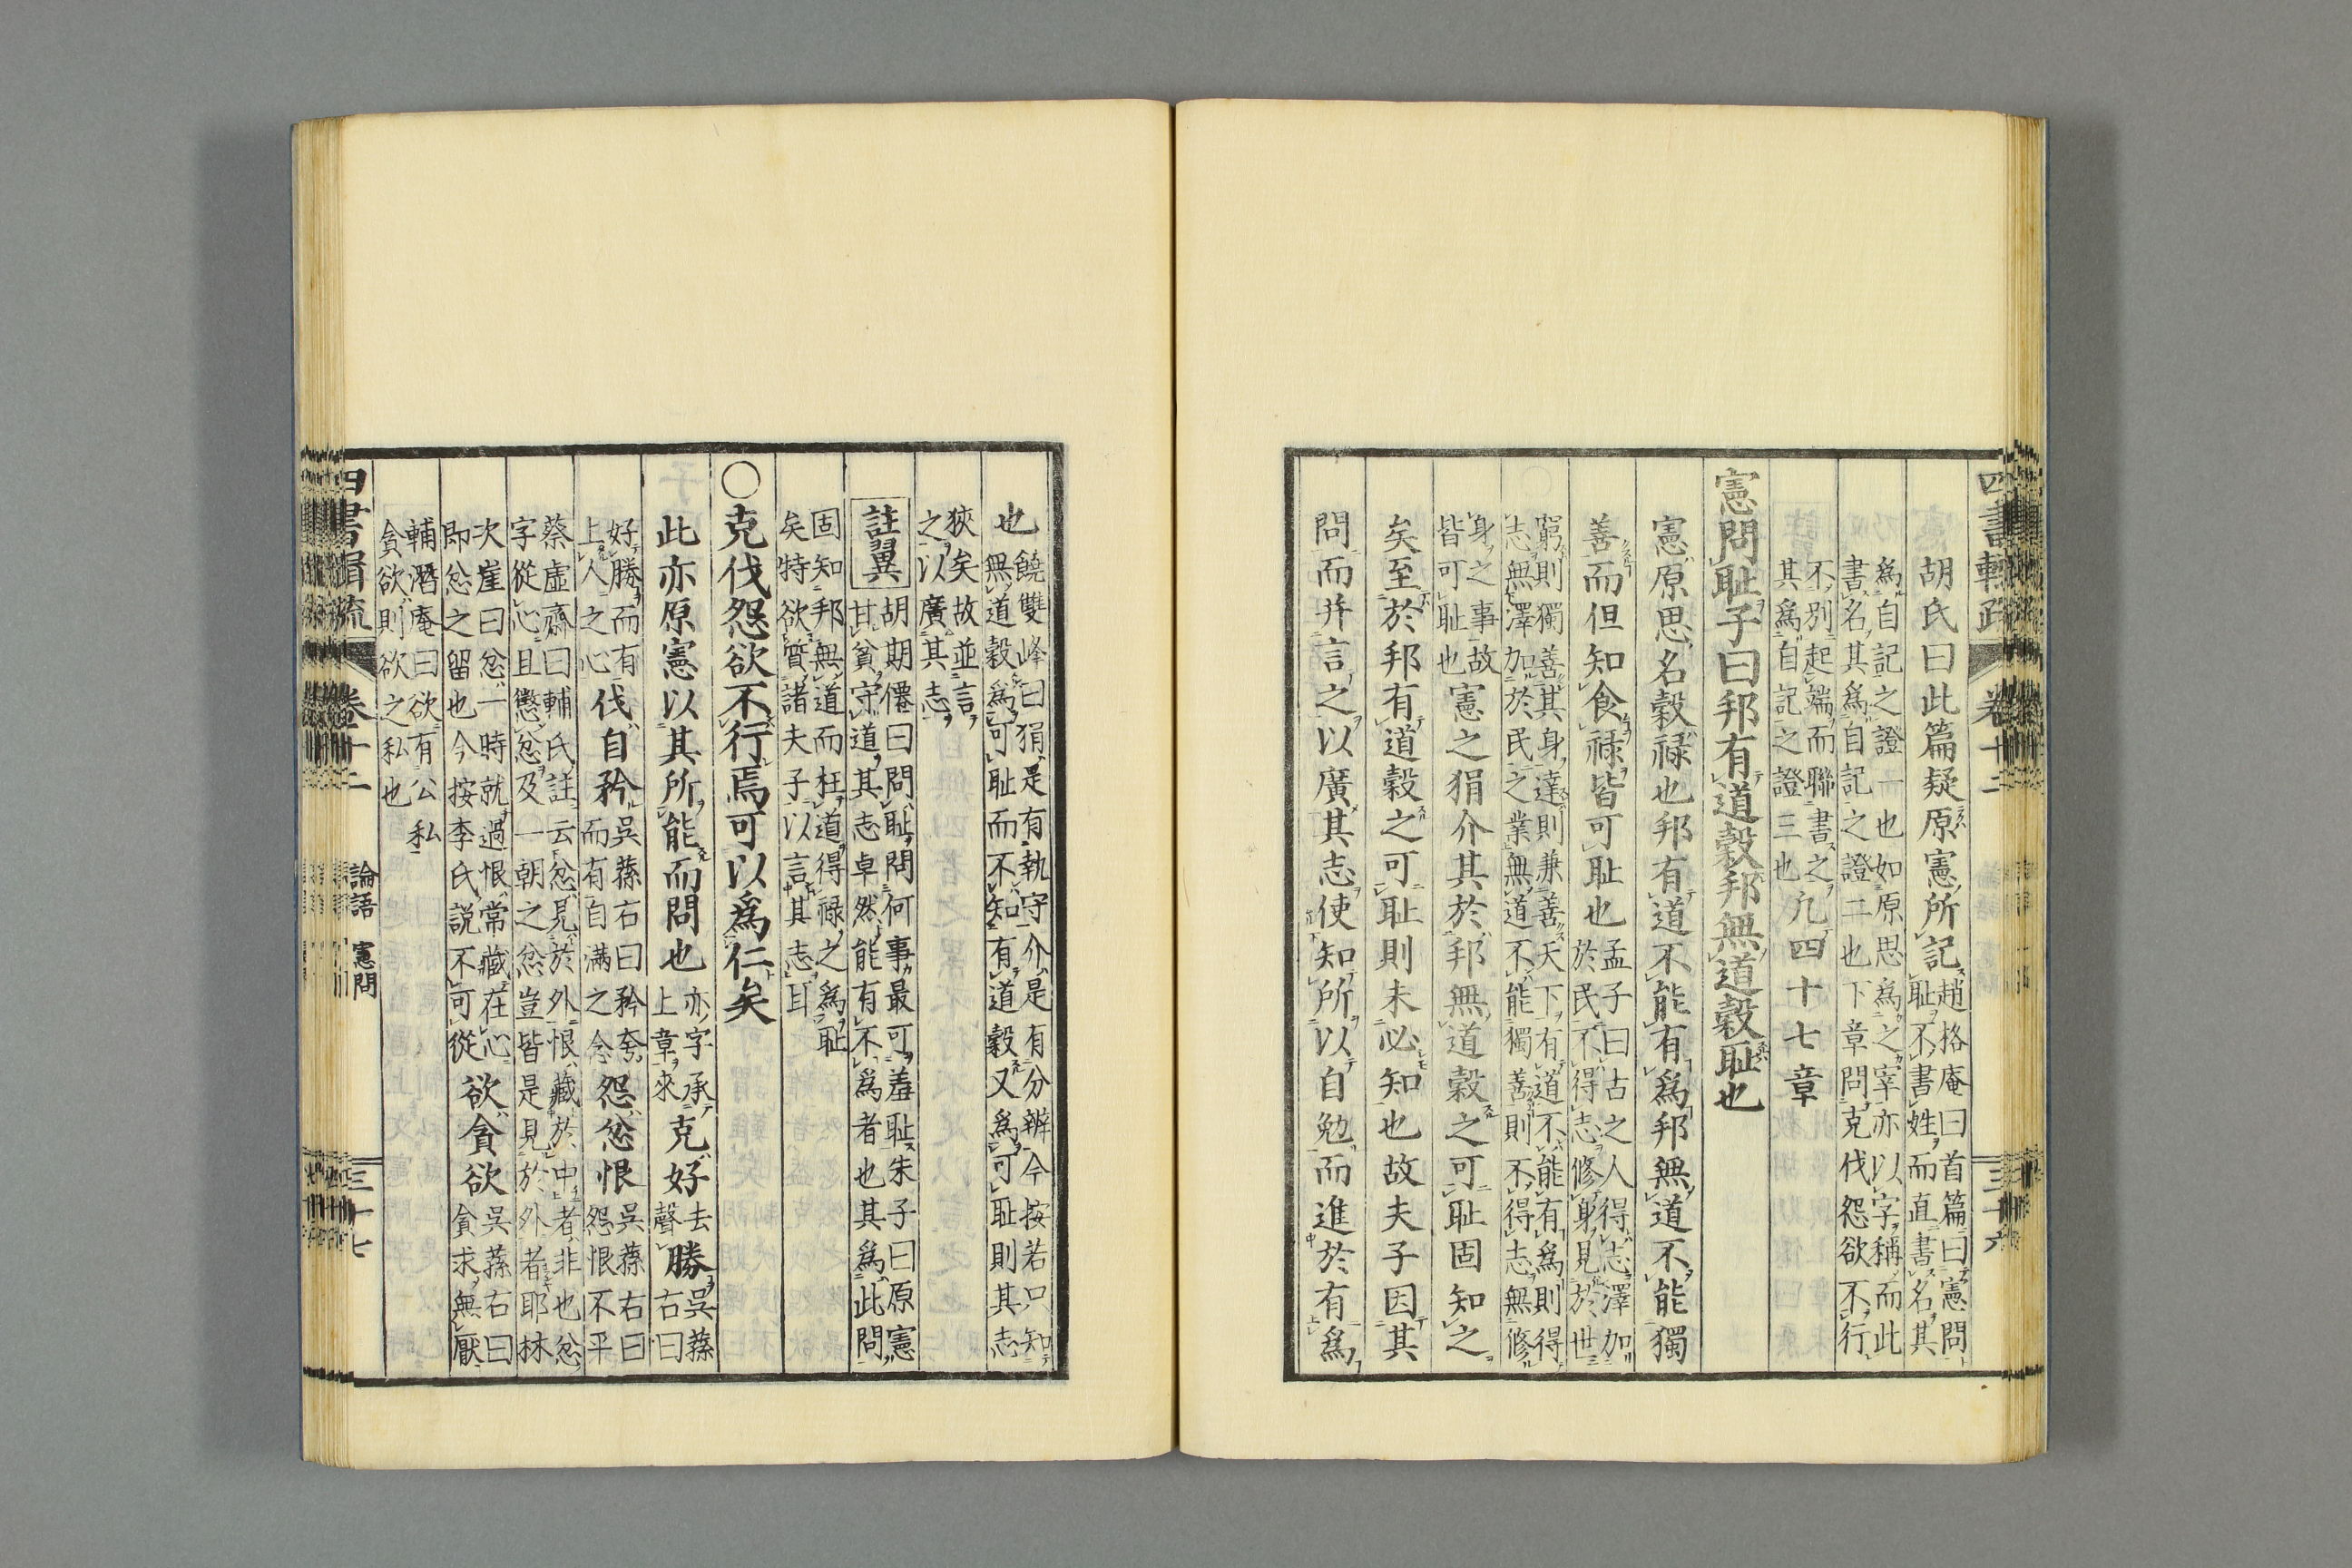 胡氏曰此篇疑原憲所記趙格庵曰首篇曰憲問
耻不書姓而直書名其
爲自記之證一也如原思爲之宰亦以字稱而此
書名其爲自記之證二也下章問克伐怨欲不行
不別起端而聯書之
其爲自記之證三也凡四十七章
憲問耻子曰邦有道穀邦無道穀耻也
憲原思名穀祿也邦有道不能有爲邦無道不能獨
善而但知食祿皆可耻也孟子曰古之人得志澤加
於民不得志修身見於世
窮則獨善其身達則兼善天下有道不能有爲則得
志無澤加於民之業無道不能獨善則不得志無修
身之事故
皆可耻也憲之狷介其於邦無道穀之可耻固知之
矣至於邦有道穀之可耻則未必知也故夫子因其
問而幷言之以廣其志使知所以自勉而進於有爲
也饒雙峰曰狷是有執守介是有分辨今按若只知
無道穀爲可耻而不知有道穀又爲可耻則其志
狹矣故並言
之以廣其志
註翼胡期僊曰問耻問何事最可羞耻朱子曰原憲
甘貧守道其志卓然能有不爲者也其爲此問
固知邦無道而枉道得祿之爲耻
矣特欲質諸夫子以言其志耳
○克伐怨欲不行焉可以爲仁矣
此亦原憲以其所能而問也亦字承
上章來克好去
聲勝吳蓀
右曰
好勝而有
上人之心伐自矜吳蓀右曰矜夸
而有自滿之念怨忿恨吳蓀右曰
怨恨不平
蔡虛齋曰輔氏註云忿見於外恨藏於中者非也忿
字從心且懲忿及一朝之忿豈皆是見於外者耶林
次崖曰忿一時就過恨常藏在心
即忿之留也今按李氏說不可從欲貪欲吳蓀右曰
貪求無厭
輔潛庵曰欲有公私
貪欲則欲之私也
四書輯疏 卷十二 論語 憲問 三十七